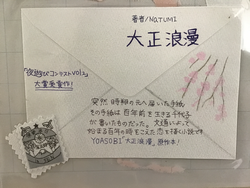 著者/NATUMI
大正浪漫
「夜遊びコンテストvol.2」
大賞受賞作!
突然 時翔の元へ届いた手紙
その手紙は百年前を生きる千代子
が書いたものだった。文通によって
始まる百年の時をこえた恋を描く小説です
YOASOBI「大正浪漫」原作本!